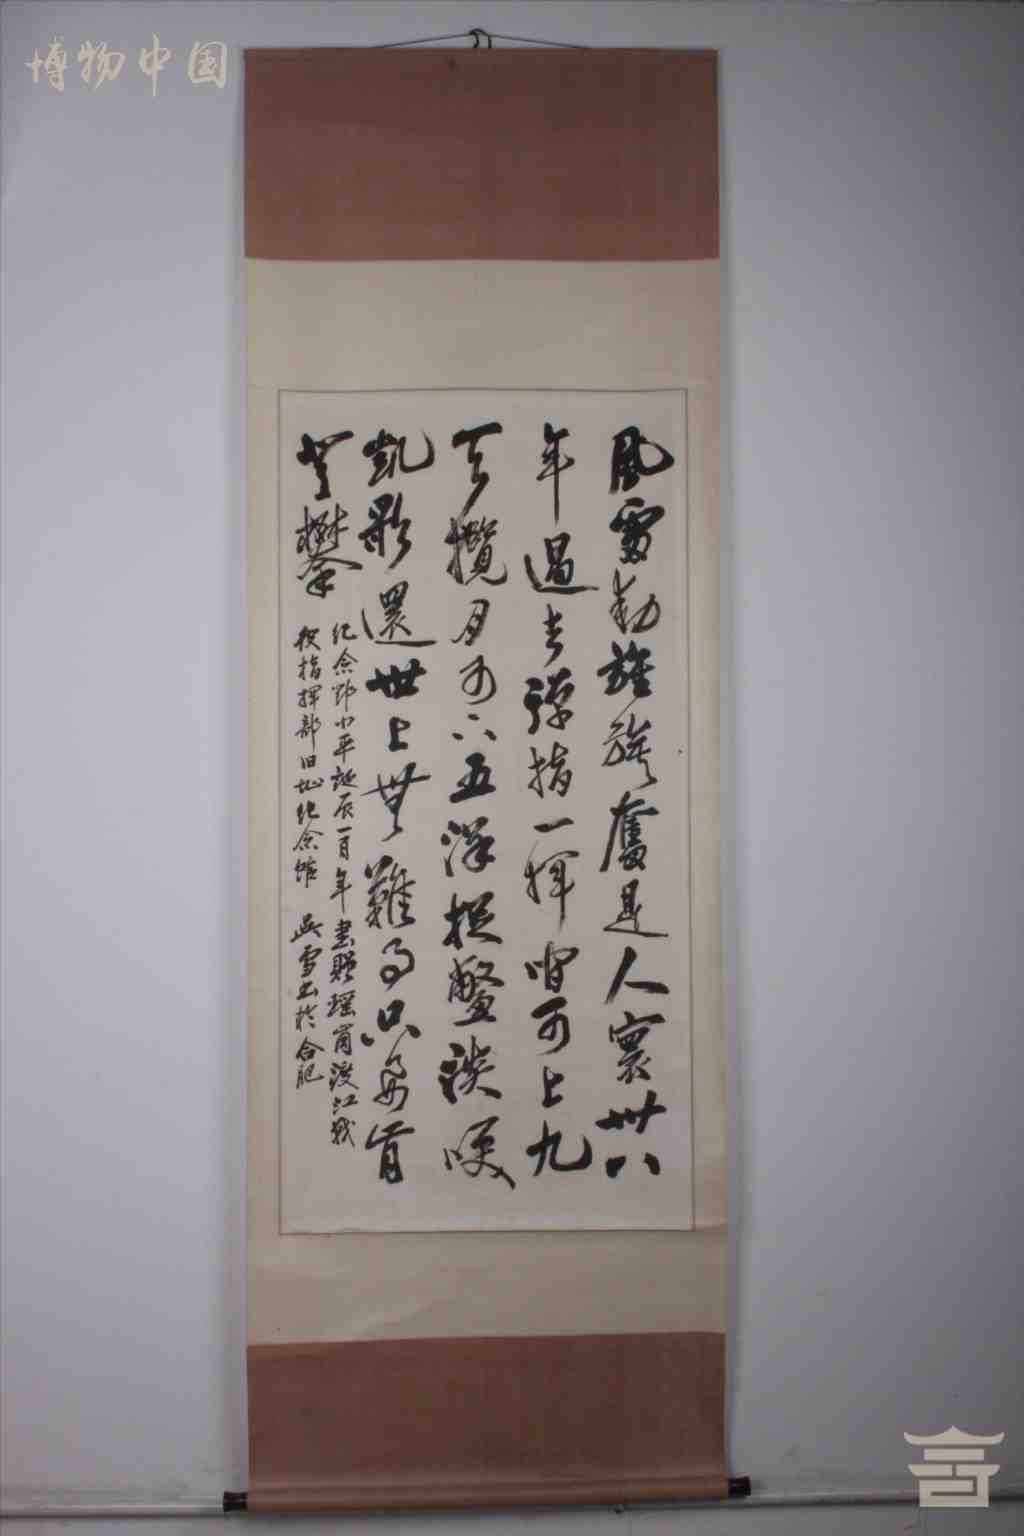 博物中国
風雷動旌旗奮是人寰卅八
年過去彈指一揮間可上九
天攬月可下五洋捉鱉談咲
凱歌還世上無難事只要肯
登攀
纪念邓小平誕辰一百年書贈瑶崗渡江戰
役指揮部旧址纪念馆 吴雪书於合肥